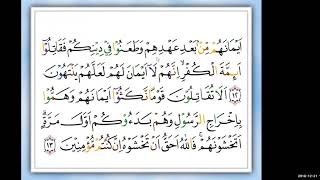 اَيْمَانَهُمْ مِنْ بَعْدِ عَهْدِهِمْ وَطَعَنُوا فِي دِينِكُمْ فَقَاتِلُوا
اَئِمَّةَ الْكُفْرِ اِنَّهُمْ لَا اَيْمَانَ لَهُمْ لَعَلَّهُمْ يَنْتَهُونَ
١٢ اَلَا تُقَاتِلُونَ قَوْمًا نَكَثُوا اَيْمَانَهُمْ وَهَمُّوا
بِاِخْرَاجِ الرَّسُولِ وَهُمْ بَدَءُوكُمْ اَوَّلَ مَرَّةٍ
اَتَخْشَوْنَهُمْ فَاللّٰهُ اَحَقُّ اَنْ تَخْشَوْهُ اِنْ كُنْتُمْ مُؤْمِنِينَ ١٣
2018-12-21